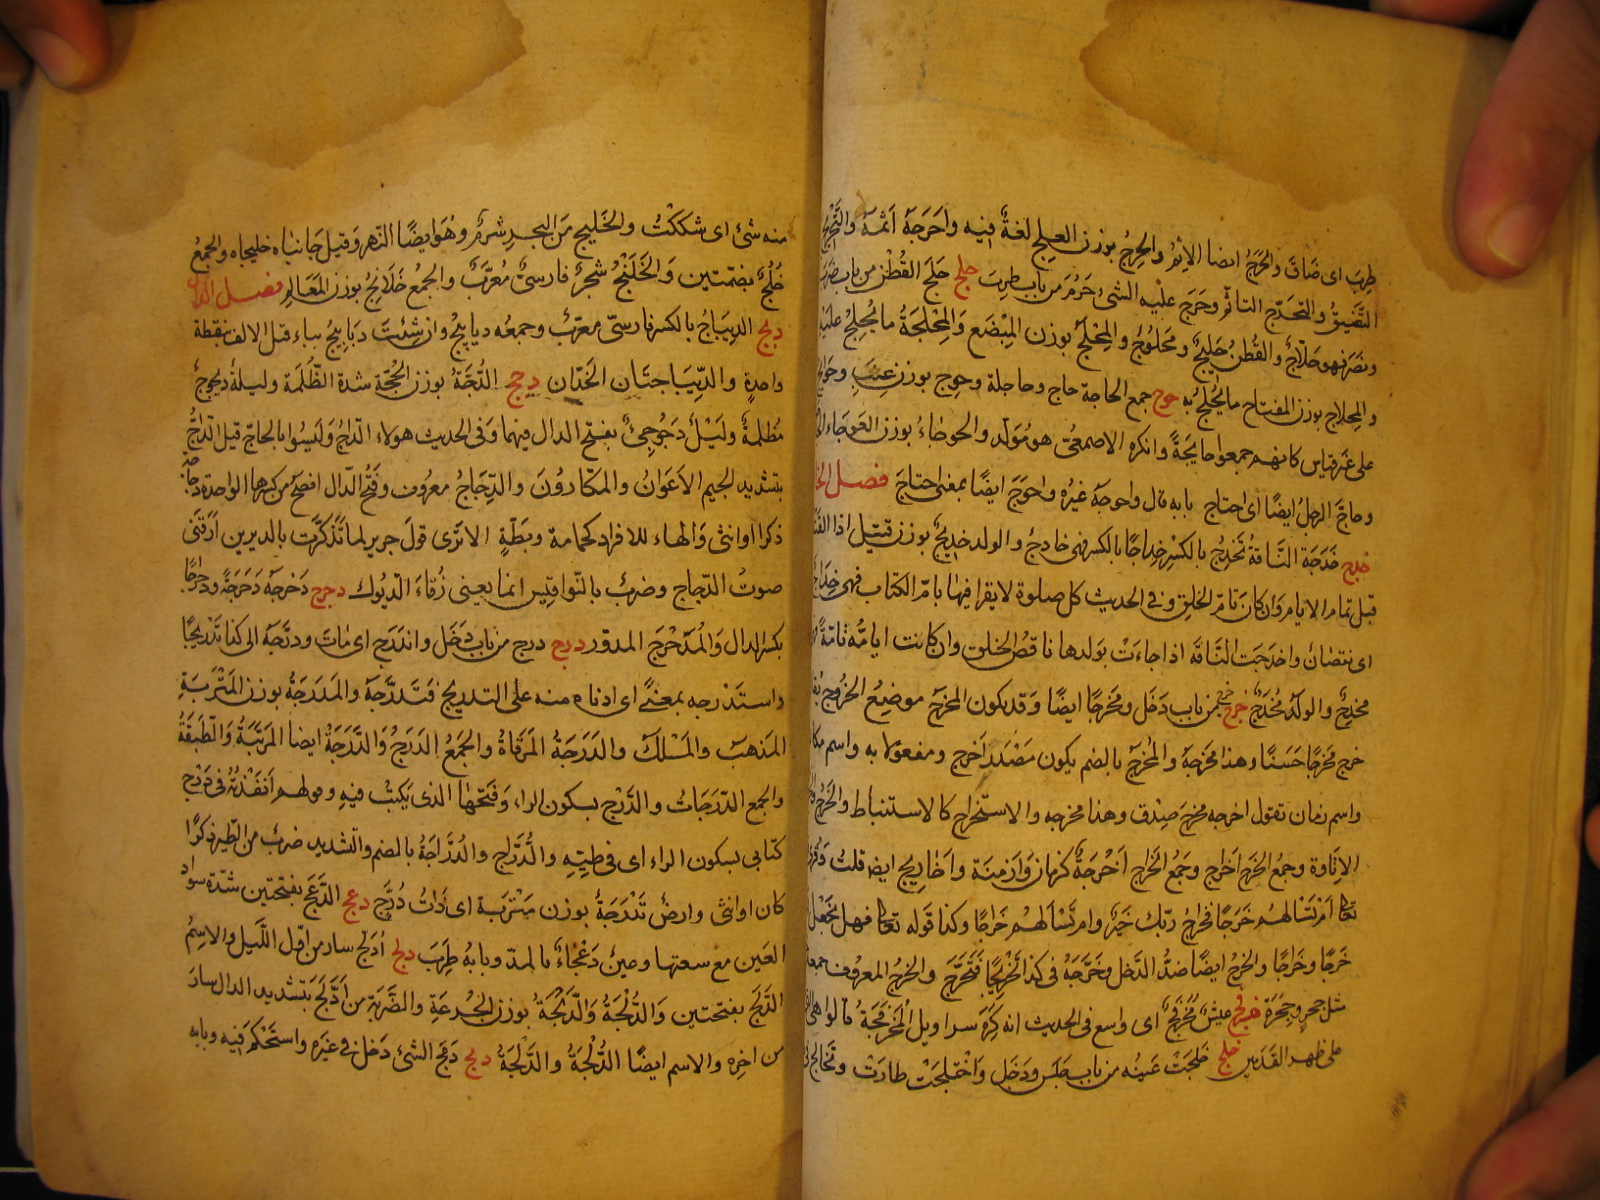 طرب اى ضاق والحرج ايضا الاثم والحرج بوزن العلج لغة فيه واحرجه آثمه والتحريج
التضييق والتحرج التاثم وحرج عليه الشئ حرم من باب طرب حلج حلج القطن من باب ضرب
ونصر فهو حلاج والقطن حليج ومحلوج والمحلج بوزن المبضع والمحلجة ما يحلج عليه
والمحلاج بوزن المفتاح ما يحلج به حوج جمع الحاجة حاج وحاجات وحوج بوزن عنب وحوائج
على غير قياس كانهم جمعوا حايجة وانكره الاصمعى هو مولد والحوجاء بوزن العوجاء
وحاج الرجل ايضا اى احتاج بابه قال واحوجه غيره واحوج ايضا بمعنى احتاج فصل الخاء
خدج خدجة الناقة تخدج بالكسر خداجا بالكسر فهى خادج والولد خديج بوزن قتيل اذا القته
قبل تمام الايام وان كان تام الخلق وفى الحديث كل صلوة لا يقرا فيها بام الكتاب فهى خداج
اى نقصان واخدجت الناقة اذا جاءت بولدها ناقص الخلق وان كانت ايامه تامة
مخدج والولد مخدج خرج خرج من باب دخل ومخرجا ايضا وقد يكون المخرج موضع الخروج يقال
خرج مخرجا حسنا وهذا مخرجه والمخرج بالضم يكون مصدر اخرج ومفعولا به واسم مكان
واسم زمان تقول اخرجه مخرج صدق وهذا مخرجه والاستخراج كالاستنباط والخرج
الاتاوة وجمع الخرج اخراج وجمع الخراج اخرجة كزمان وازمنة واخاريج ايضا قلت
تعالى ام تسالهم خرجا فخراج ربك خير وام تسالهم خراجا وكذا قوله تعالى فهل نجعل
خرجا وخراجا والخرج ايضا ضد الدخل وخرجه فى كذا تخريجا فتخرج والخرج المعروف جمعه
مثل جحر وجحرة خرفج عيش مخرفج اى واسع فى الحديث انه كره سراويل المخرفجة قالوا هى
على ظهر القدمين خلج خلجت عينه من باب جلس ودخل واختلجت طارت وتخالج
منه شئ اى شككت والخليج من البحر شرم وهو ايضا النهر وقيل جانباه خليجاه والجمع
خلج بضمتين والخلنج شجر فارسى معرب والجمع خلانج بوزن المعالم فصل الدال
دبج الديباج بالكسر فارسى معرب وجمعه ديابيج وان شئت دبابيج بباء قبل الالف بنقطة
واحدة والديباجتان الخدان دجج الدجة بوزن الحجة شدة الظلمة وليلة ديجوج
مظلمة وليل دجوجى بفتح الدال فيهما وفى الحديث هولاء الداج وليسوا بالحاج قيل الداج
بتشديد الجيم الاعوان والمكارون والدجاج معروف وفتح الدال افصح من كسرها الواحدة دجاجة
ذكرا او انثى والهاء للافراد كحمامة وبطة الا ترى قول جرير لما تذكرت بالديرين ارقنى
صوت الدجاج وضرب بالنواقيس انما يعنى زقاء الديوك دحرج دحرجه دحرجة ودحراجا
بكسر الدال والمدحرج المدور درج درج من باب دخل واندرج اى مات ودرجه الى كذا تدريجا
واستدرجه بمعنى اى ادناه منه على التدريج فتدرجه والمدرجة بوزن المتربة
المذهب والمسلك والدرجة المرقاة والجمع الدرج والدرجة ايضا المرتبة والطبقة
والجمع الدرجات والدرج بسكون الراء وفتحها الذى يكتب فيه وقولهم انفذته فى درج
كتابى بسكون الراء اى فى طيه والدراج والدراجة بالضم والتشديد ضرب من الطير ذكرا
كان او انثى وارض تدرجة بوزن متربة اى ذات دراج دعج الدعج بفتحتين شدة سواد
العين مع سعتها وعين دعجاء بالمد وبابه طرب دلج ادلج سار من اول الليل والاسم
الدلج بفتحتين والدلجة والدلجة بوزن الجرعة والضربة من ادلج بتشديد الدال سار
من اخره والاسم ايضا الدلجة والدلجة دمج دمج الشئ دخل فى غيره واستحكم فيه وبابه